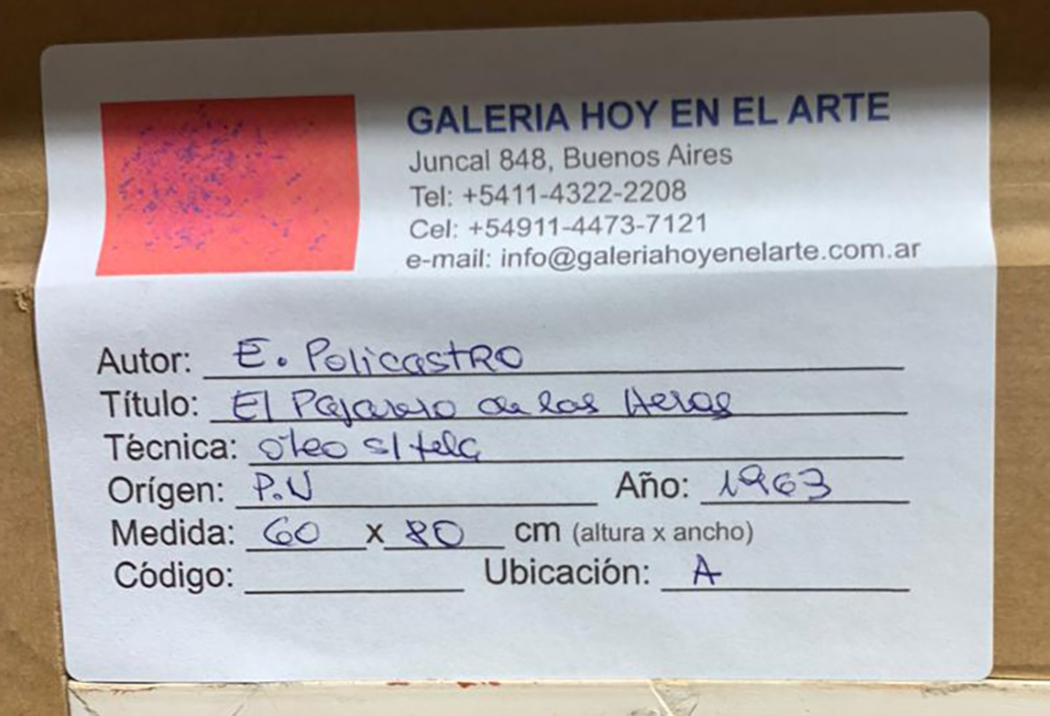 GALERIA HOY EN EL ARTE
Juncal 848, Buenos Aires
Tel: +5411-4322-2208
Cel: +54911-4473-7121
e-mail: info@galeriahoyenelarte.com.ar
Autor: E. Policastro
Título: El Pajarero de las Heras
Técnica: óleo s/tela
Orígen: P.V Año: 1963
Medida: 60 x 80 cm (altura x ancho)
Código: Ubicación: A